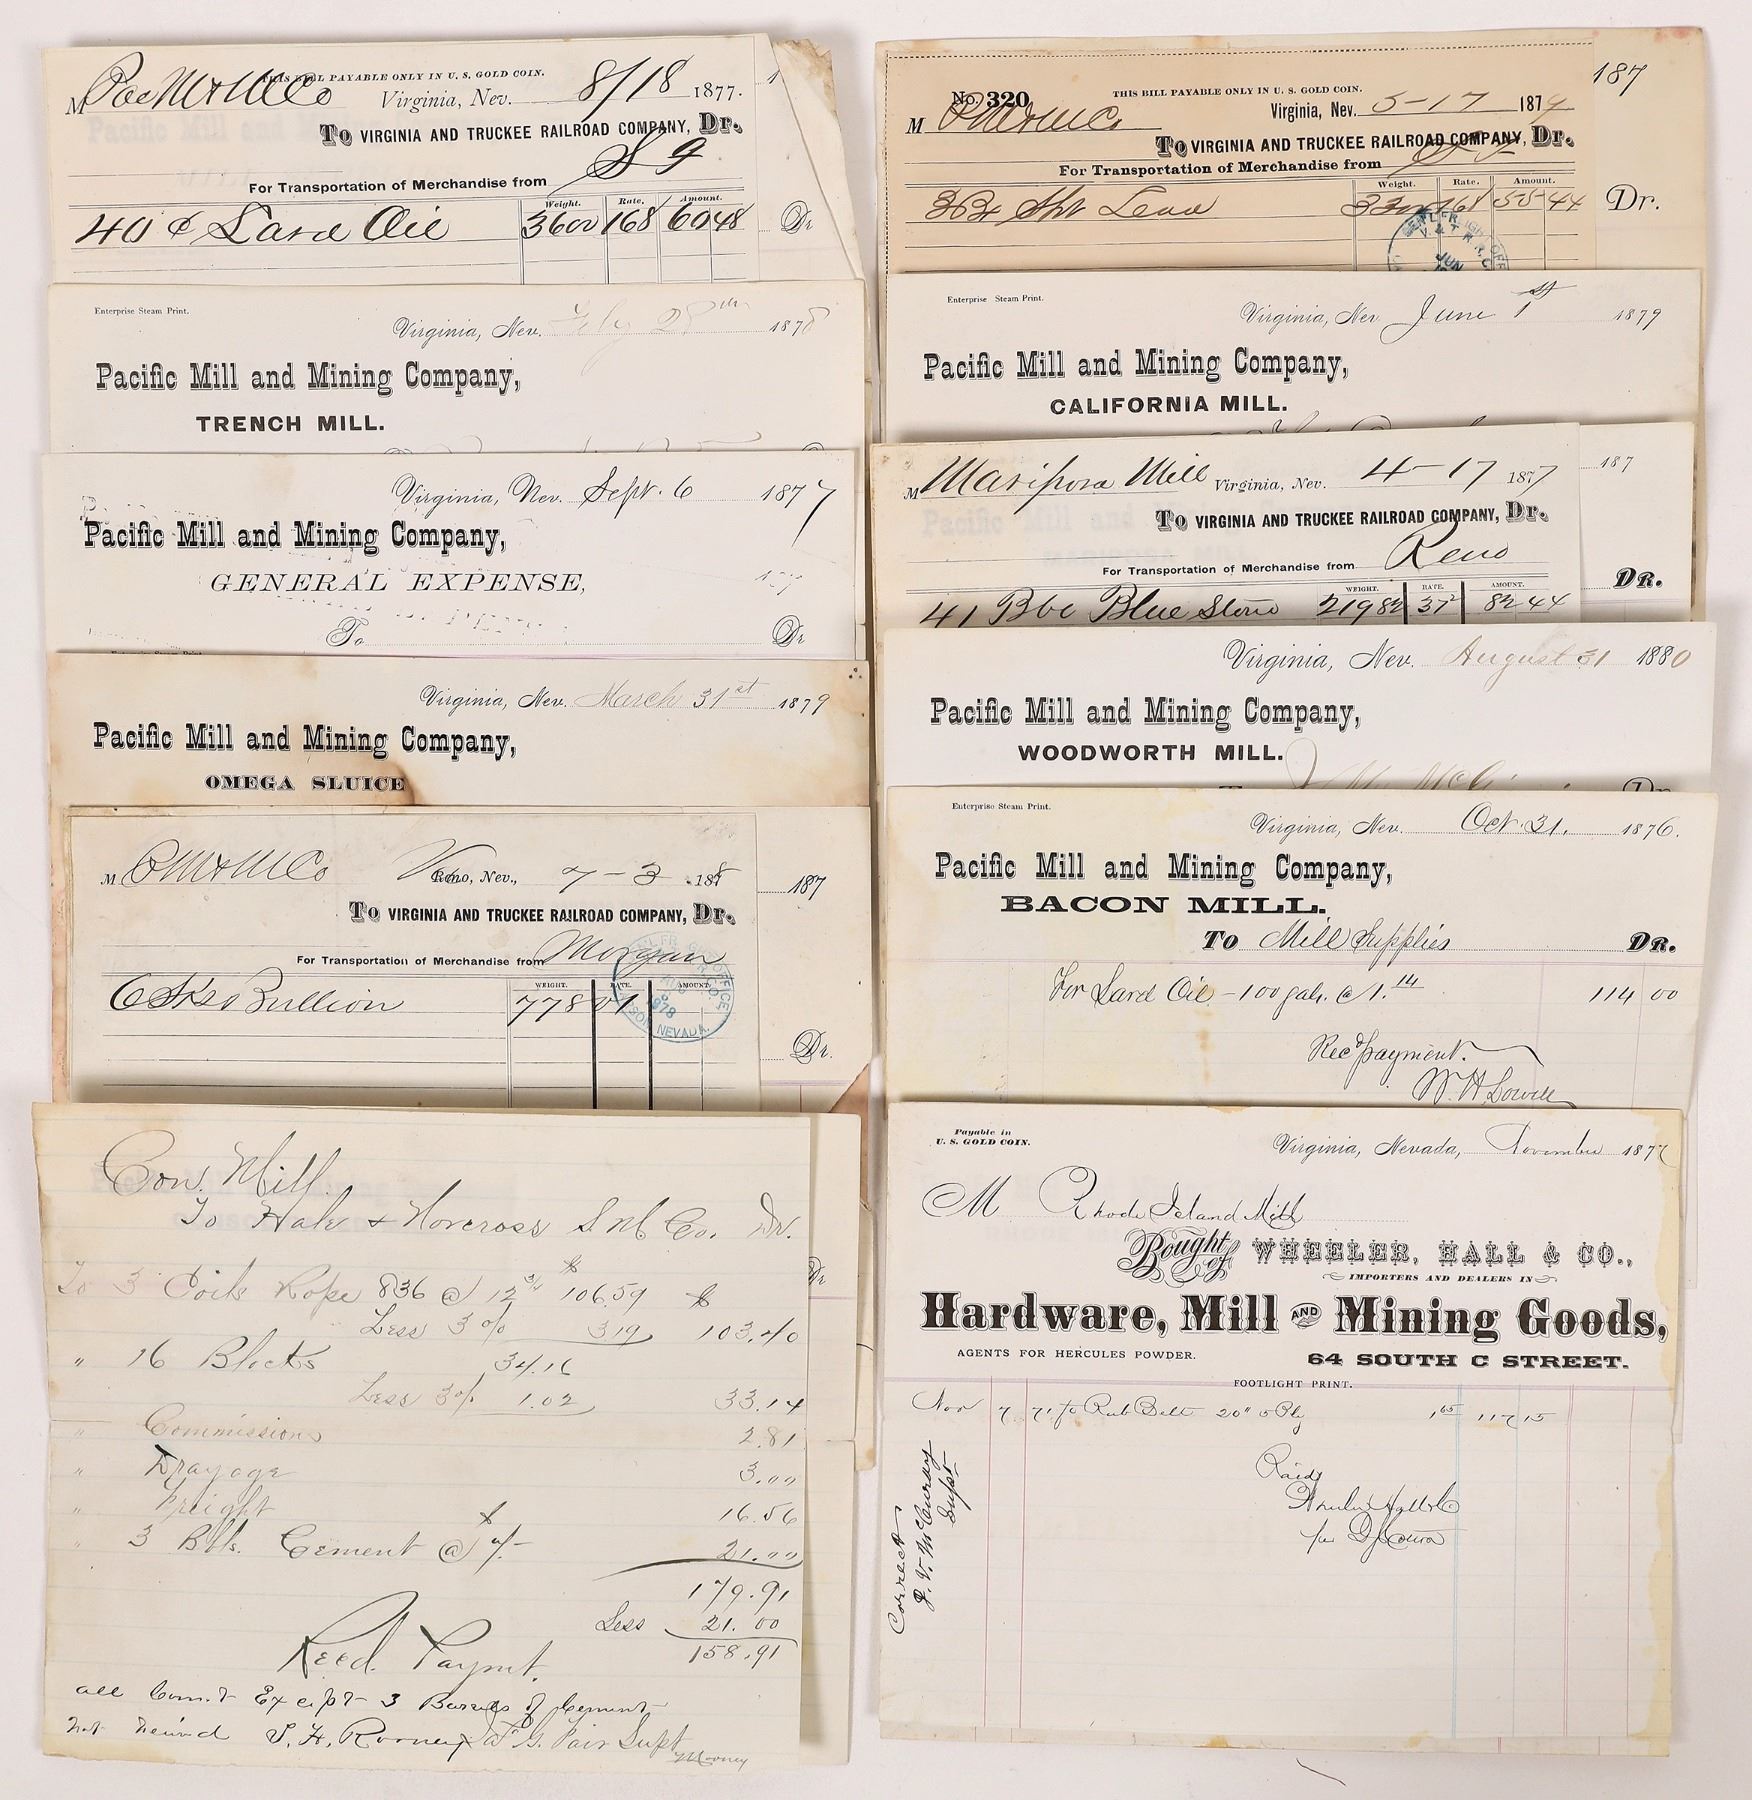 THIS BILL PAYABLE ONLY IN U. S. GOLD COIN.
M Pac M & M Co Virginia, Nev. 8/18 1877.
To VIRGINIA AND TRUCKEE RAILROAD COMPANY, Dr.
For Transportation of Merchandise from S 9
Weight. Rate. Amount.
40 ¢ Lard Oil 3600 168 60 48
Dr
Enterprise Steam Print.
Virginia, Nev. Feby 28th 1878
Pacific Mill and Mining Company,
TRENCH MILL.
Virginia, Nev. Sept. 6 1877
Pacific Mill and Mining Company,
GENERAL EXPENSE,
To Dr
Virginia, Nev. March 31st 1879
Pacific Mill and Mining Company,
OMEGA SLUICE
M P M & M Co Reno, Nev., 7-3 1878
187
To VIRGINIA AND TRUCKEE RAILROAD COMPANY, Dr.
For Transportation of Merchandise from Morgan
WEIGHT. RATE. AMOUNT.
6 Sks Bullion 778
NEVADA.
Dr.
Con. Mill.
To Hale & Norcross S M Co. Dr.
To 3 Coils Rope 836 @ 12 3/4 $ 106.59 $
Less 3 % 3.19 103.40
" 16 Blocks 34.16
Less 3 % 1.02 33.14
" Commission 2.81
" Drayage 3.00
" Freight 16.56
" 3 Bbls. Cement @ $ 7/- 21.00
179.91
Less 21.00
158.91
Recd. Paymt.
all Corr.t Except 3 Barrels of Cement
not received S. H. Rooney Jas G. Fair Supt
Mooney
187
No. 320 THIS BILL PAYABLE ONLY IN U. S. GOLD COIN.
M P M & M Co Virginia, Nev. 5-17 1879
To VIRGINIA AND TRUCKEE RAILROAD COMPANY, Dr.
For Transportation of Merchandise from
Weight. Rate. Amount.
168 55 44
Dr.
JUN
Enterprise Steam Print.
Virginia, Nev. June 1st 1879
Pacific Mill and Mining Company,
CALIFORNIA MILL.
M Mariposa Mill Virginia, Nev. 4-17 1877
187
To VIRGINIA AND TRUCKEE RAILROAD COMPANY, Dr.
For Transportation of Merchandise from Reno
DR.
WEIGHT. RATE. AMOUNT.
41 Bbl Blue Stone 21982 37½ 82 44
Virginia, Nev. August 31 1880
Pacific Mill and Mining Company,
WOODWORTH MILL.
Enterprise Steam Print.
Virginia, Nev. Oct. 31. 1876.
Pacific Mill and Mining Company,
BACON MILL.
To Mill Supplies DR.
For Lard Oil - 100 gals. @ 1.14 114 00
Rec'd payment.
W. H. Lowell
Payable in
U. S. GOLD COIN.
Virginia, Nevada, November 1877
M Rhode Island Mill
Bought of WHEELER, HALL & CO.,
IMPORTERS AND DEALERS IN
Hardware, Mill AND Mining Goods,
AGENTS FOR HERCULES POWDER.
64 SOUTH C STREET.
FOOTLIGHT PRINT.
Nov 7 71 ft Rub Belt 20" 5 Ply 1 65 117 15
Paid
Wheeler Hall & Co
per
Correct
J. V. McCurdy
Supt